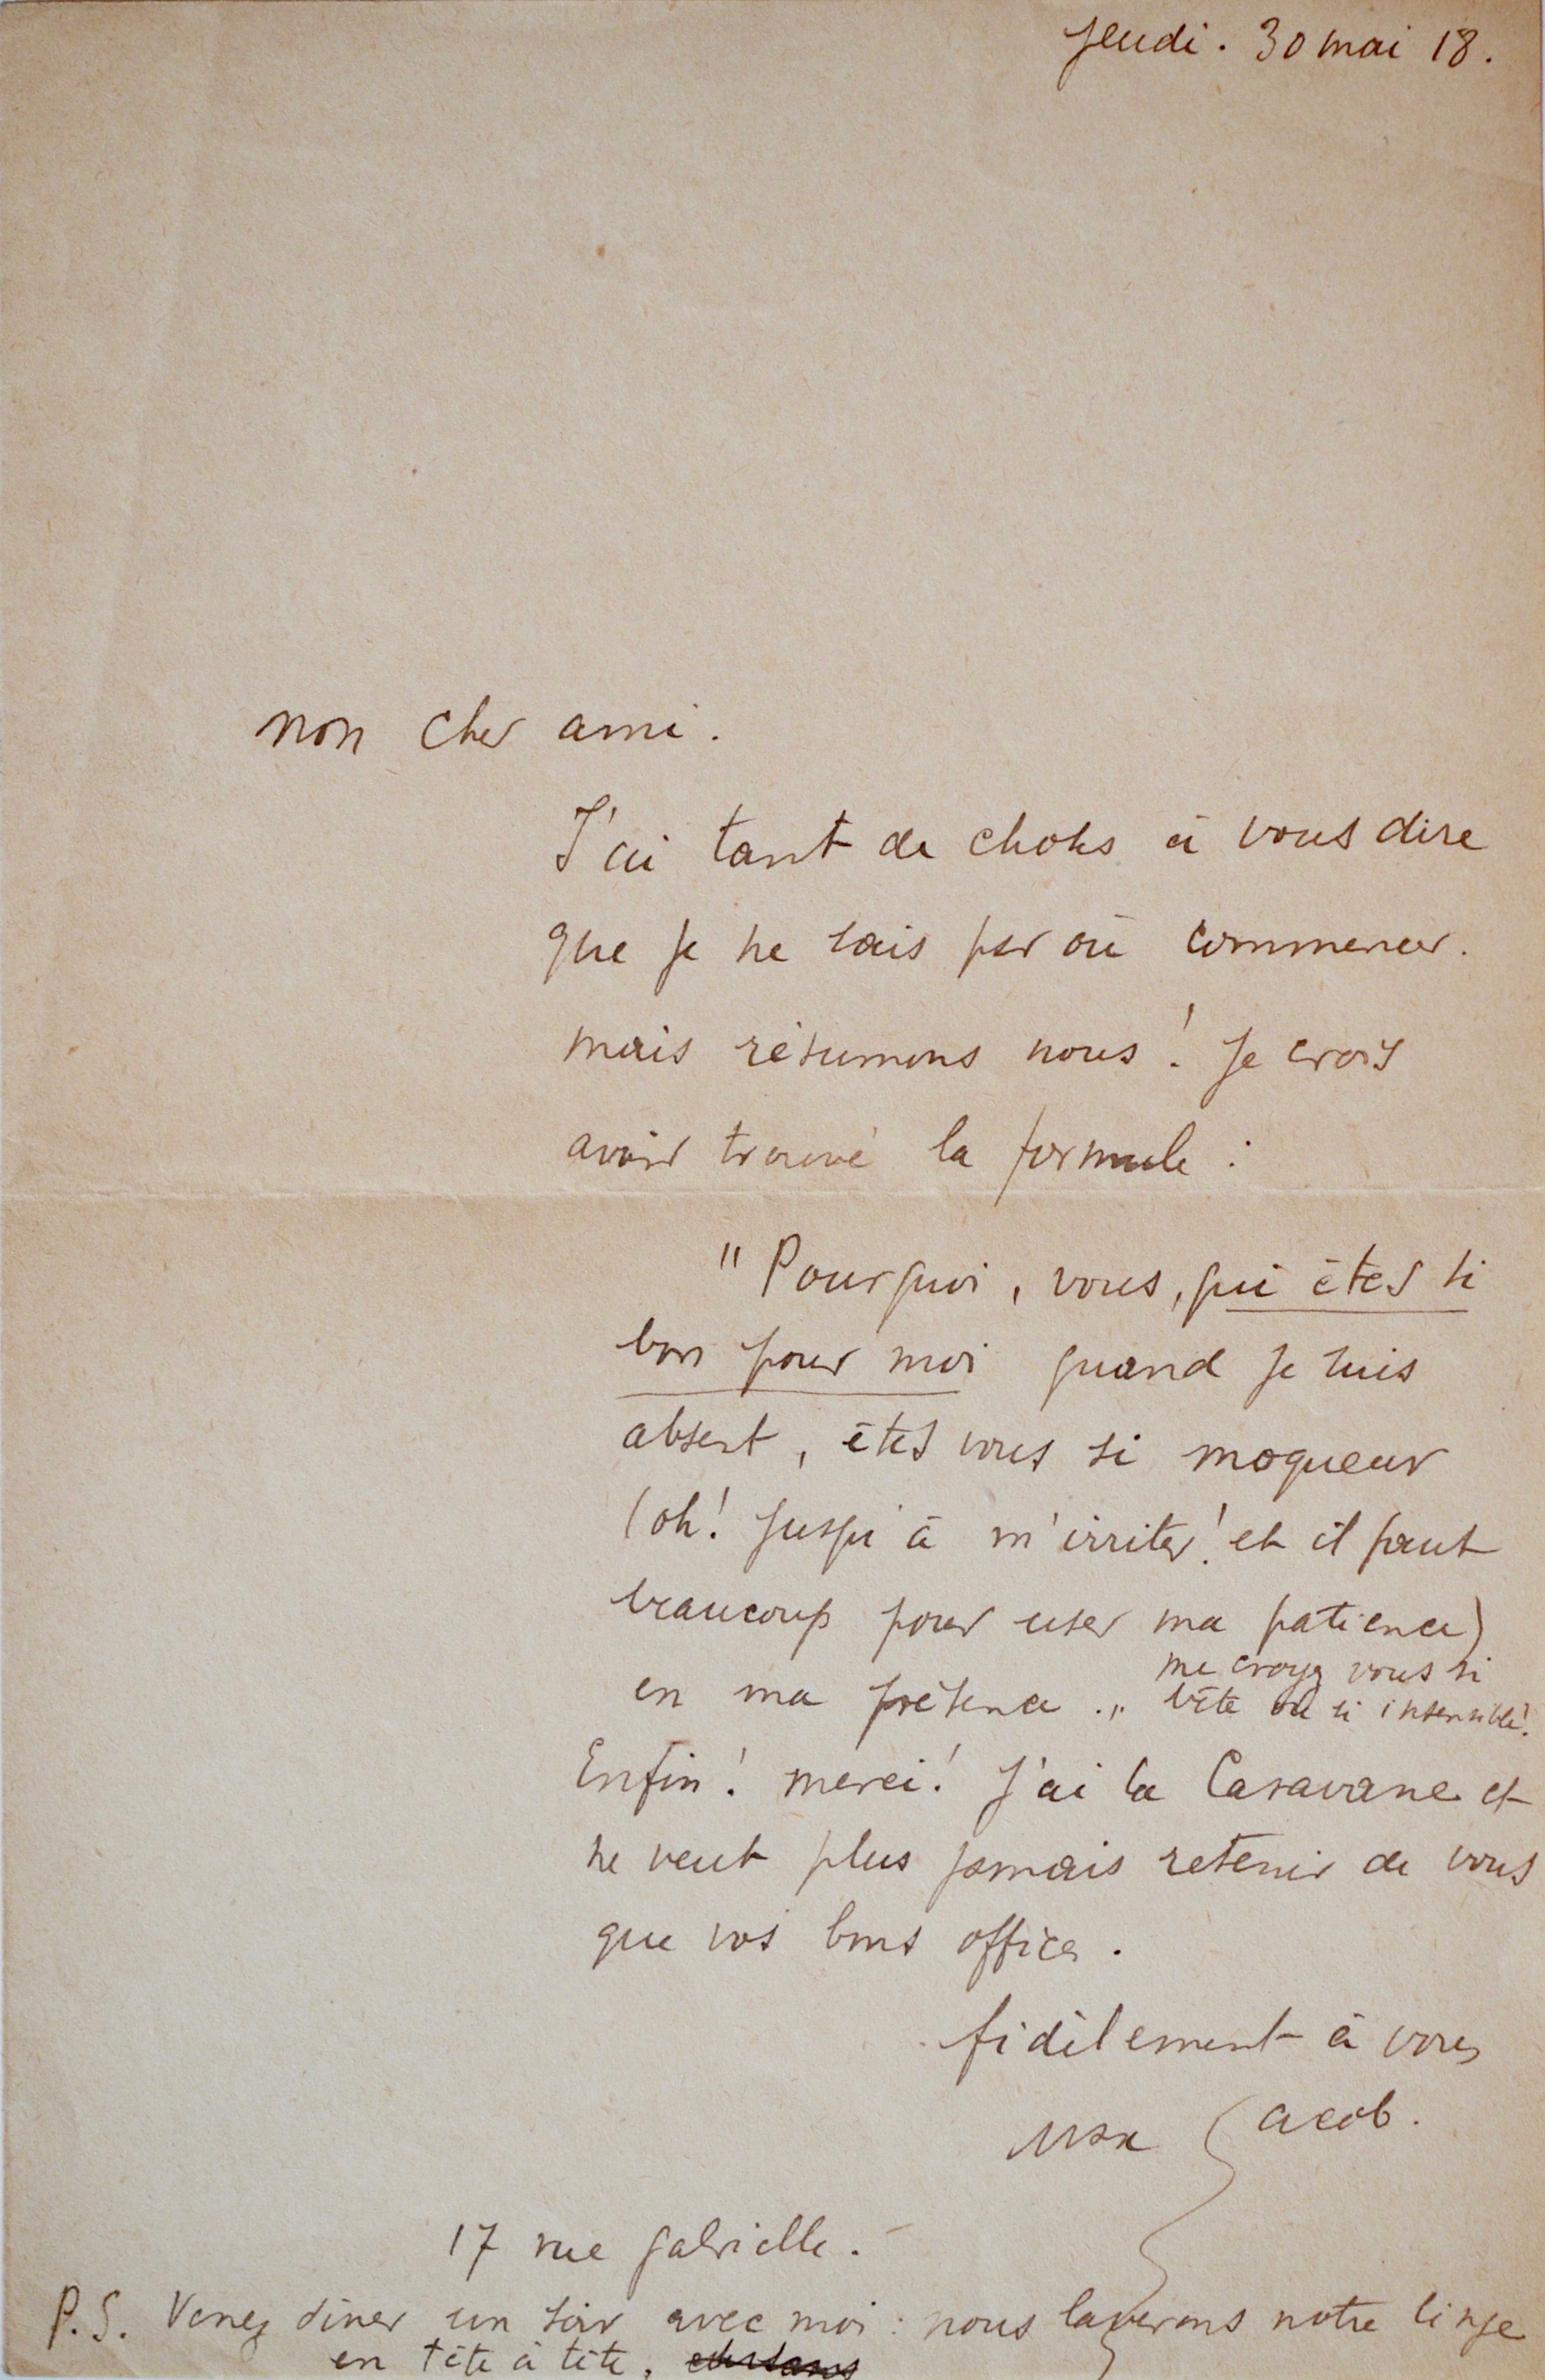 Jeudi. 30 mai 18.
Mon cher ami.
J'ai tant de choses à vous dire
que je ne sais par où commencer.
mais résumons nous! Je crois
avoir trouvé la formule :
" Pourquoi, vous, qui êtes si
bon pour moi quand je suis
absent, êtes vous si moqueur
(oh! jusqu'à m'irriter! et il faut
beaucoup pour user ma patience)
en ma présence . " me croyez vous si
bête ou si insensible!
Enfin! merci! J'ai la Caravane et
ne veut plus jamais retenir de vous
que vos bons offices.
fidèlement à vous
Max Jacob.
17 rue Gabrielle.
P.S. Venez diner un soir avec moi : nous laverons notre linge
en tête à tête.